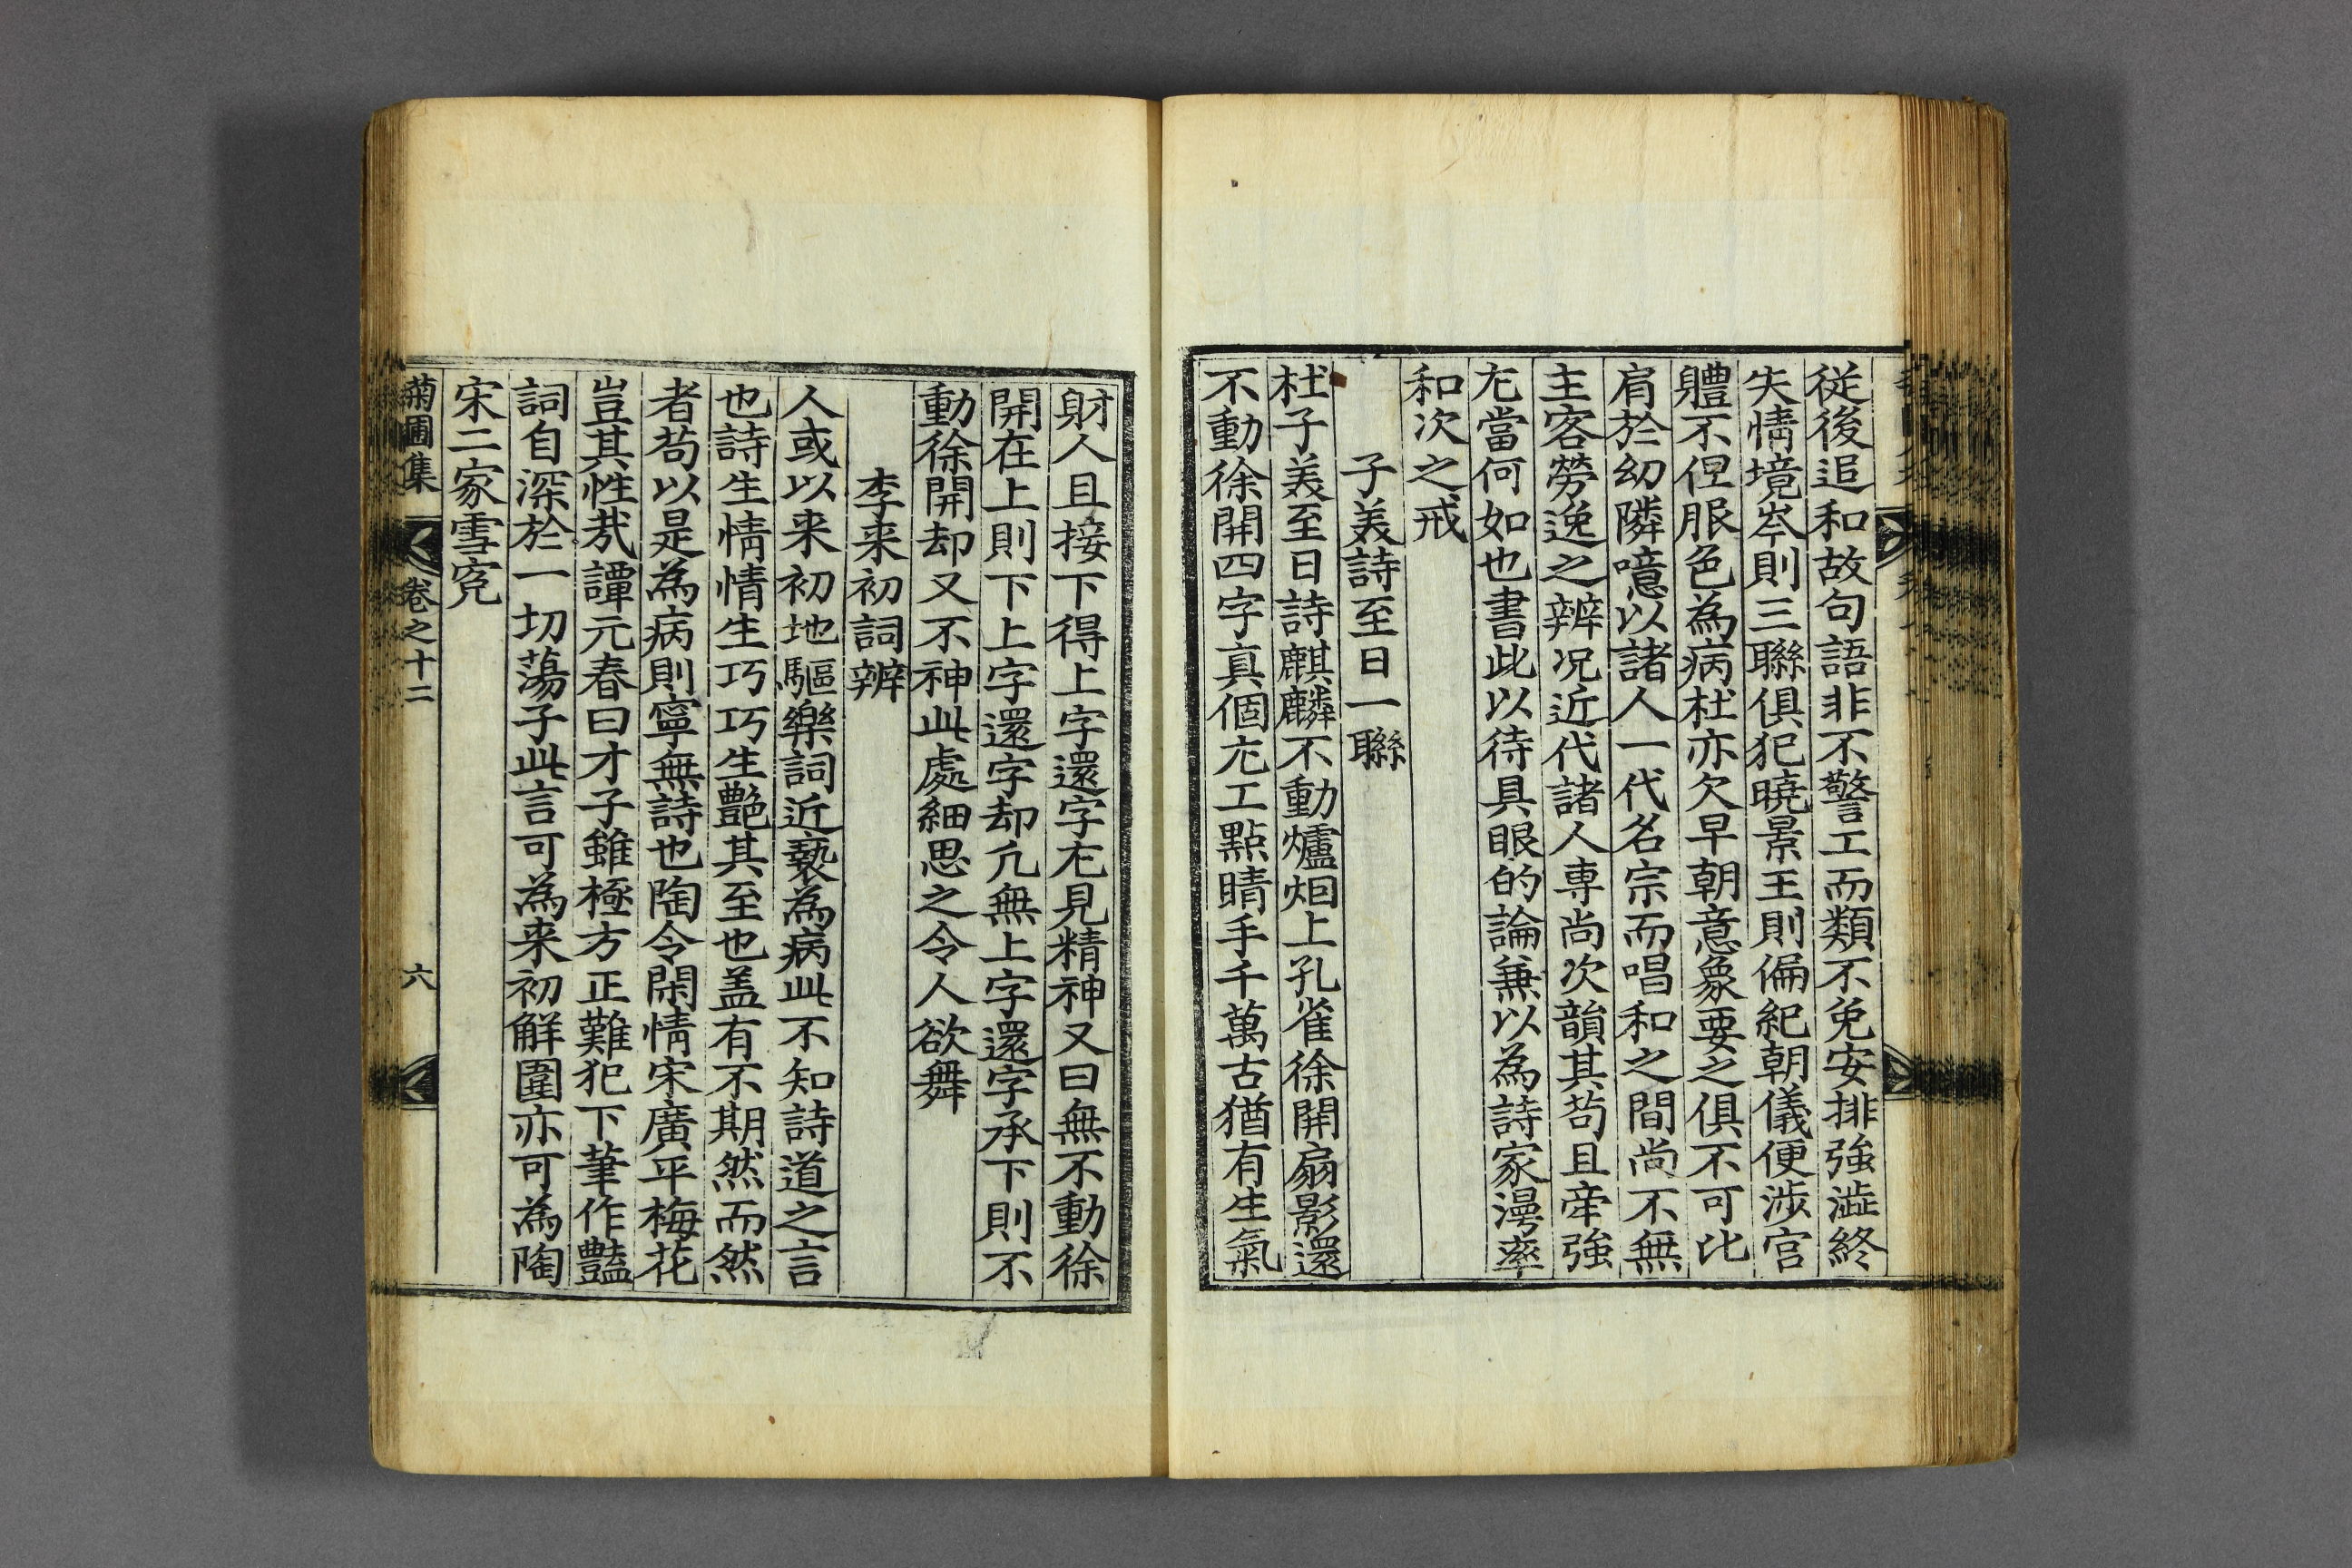 從後追和故句語非不警工而類不免安排強澁終
失情境岑則三聯俱犯曉景王則偏紀朝儀便涉官
體不但服色為病杜亦欠早朝意象要之俱不可比
肩於幼隣噫以諸人一代名宗而唱和之間尚不無
主客勞逸之辨况近代諸人專尚次韻其苟且牽強
尤當何如也書此以待具眼的論兼以為詩家漫率
和次之戒
子美詩至日一聯
杜子美至日詩麒麟不動爐烟上孔雀徐開扇影還
不動徐開四字真個尤工點睛手千萬古猶有生氣
財人且接下得上字還字尤見精神又曰無不動徐
開在上則下上字還字却凡無上字還字承下則不
動徐開却又不神此處細思之令人欲舞
李来初詞辨
人或以来初地驅樂詞近褻為病此不知詩道之言
也詩生情情生巧巧生艶其至也盖有不期然而然
者苟以是為病則寧無詩也陶令閑情宋廣平梅花
豈其性㦲譚元春曰才子雖極方正難犯下筆作豔
詞自深於一切蕩子此言可為来初解圍亦可為陶
宋二家雪寃
菊圃集
卷之十二
六